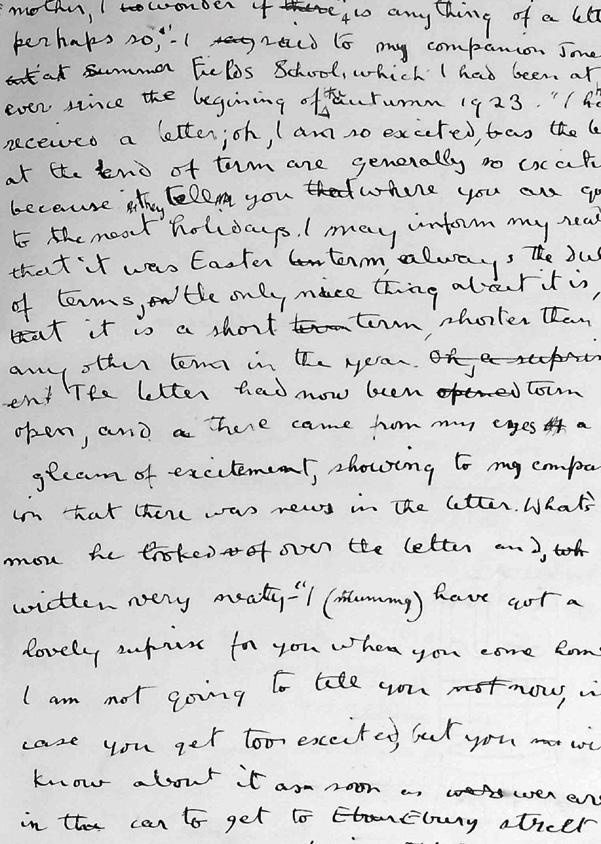 mother, I to wonder if there is anything of a lett
perhaps so," - I say said to my companion Jone
at at Summer Fields School, which I had been at
ever since the begining of the autumn 1923. "I ha
receved a letter; oh, I am so excited, as the le
at the end of term are generally so excit
because they tell you that where you are go
to the next holidays. I may inform my rea
that it was Easter term, always the dul
of terms, the only nice thing about it is,
that it is a short term term, shorter than
any other term in the year. Oh, a supris
ent The letter had now been opened torn
open, and a there came from my eyes a
gleam of excitement, showing to my compa
ion that there was news in the letter. What's
more he looked of over the letter and, wh
written very neatly - "I (Mummy) have got a
lovely suprise for you when you come hom
I am not going to tell you not now, in
case you get too excited, but you wi
know about it as soon as we are
in the car to get to Ebur Ebury street